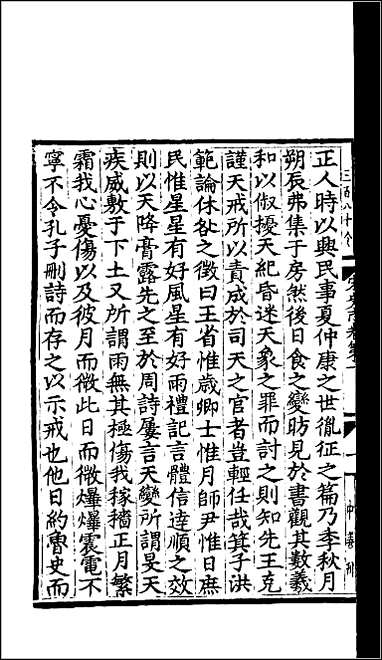 正人時以興民事夏仲康之世胤征之篇乃季秋月
朔辰弗集于房然後日食之變昉見於書觀其數羲
和以俶擾天紀昏迷天象之罪而討之則知先王克
謹天戒所以責成於司天之官者豈輕任哉箕子洪
範論休咎之徵曰王省惟歲卿士惟月師尹惟日庶
民惟星星有好風星有好雨禮記言體信達順之效
則以天降膏露先之至於周詩屢言天變所謂旻天
疾威敷于下土又所謂雨無其極傷我稼穡正月繁
霜我心憂傷以及彼月而微此日而微爗爗震電不
寧不令孔子刪詩而存之以示戒也他日約魯史而